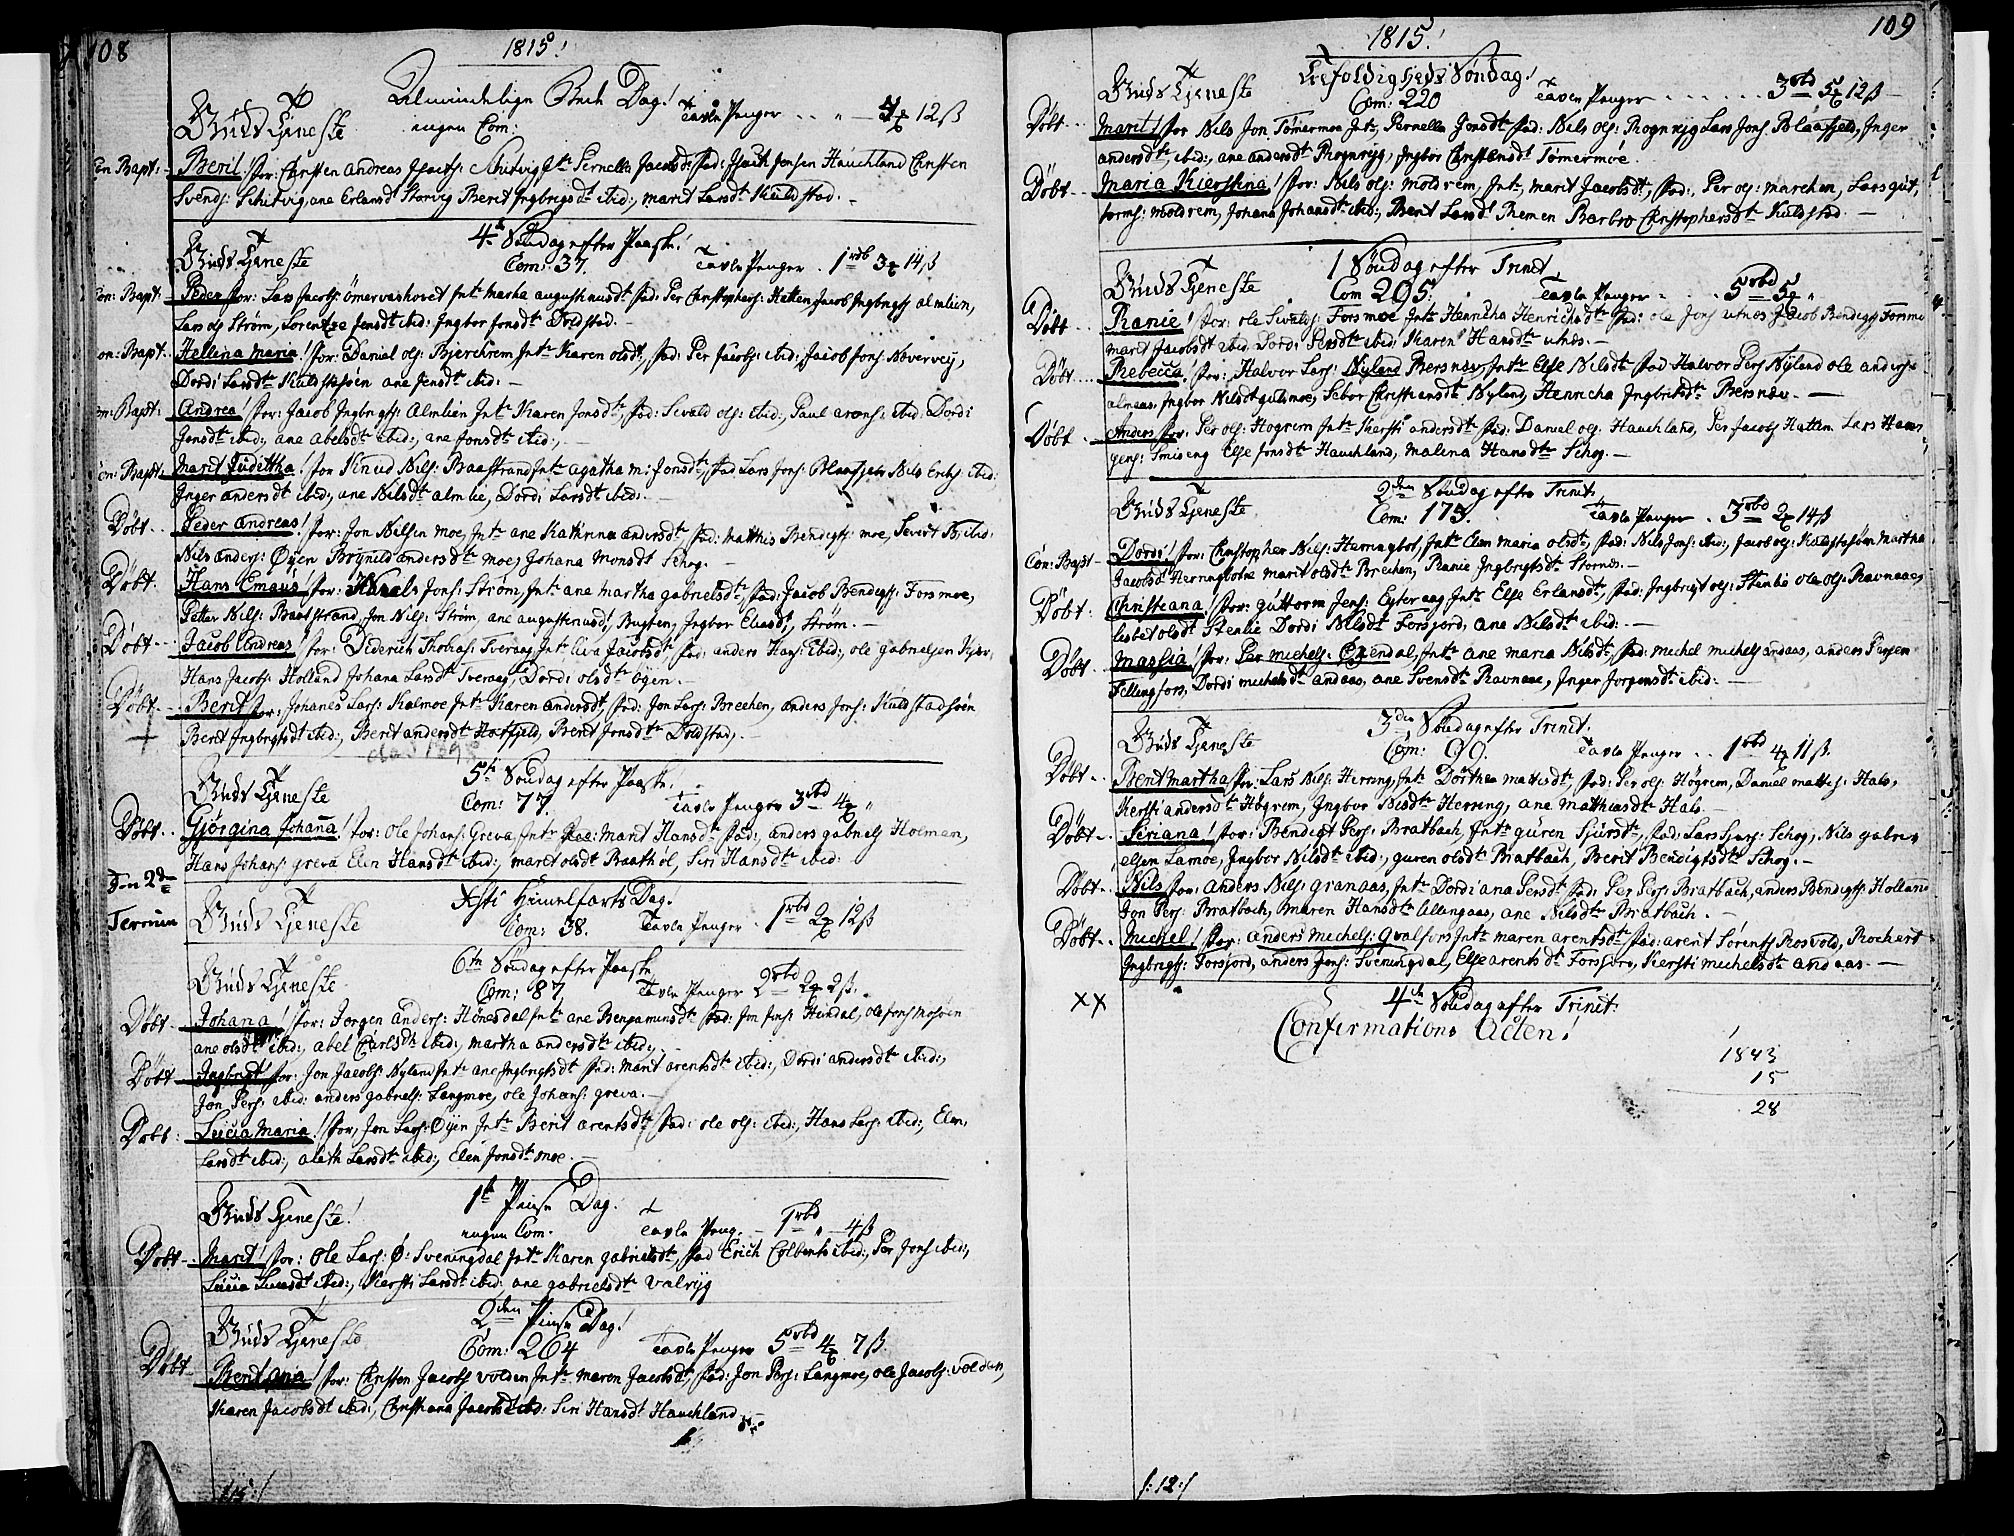 108
1815!
Almindelige Bede Dag!
Guds Tjeneste ingen Com: Tavle Penger .. " — 4 12 ß
Con Bapt: Berit! for: Christen Andreas Isachs: Schitvig Jnt: Pernella Jacobsdt: fad: Isach Jensen Hauchland Christen
Svends: Schitvig, ane Erlansdt Storvig Berit Ingbrigsdt: ibid:, marit Larsdt: Kuldstad. —
4de Søndag efter Paaske!
Guds Tjeneste Com: 37. Tavle Penger . 1 rbd 3 14 ß
Con: Bapt: Peder for: Lars Jacobs: ömervashovet Jnt: Martha augustinusdt: fad: Per Christophers: Hatten, Jacob Ingbrigts almlien,
Lars ols Strøm, Lorentze Jensdt ibid: Ingbor Jonsdt Dolstad.
Con: Bapt. Hellena maria! for: Daniel ols: Bjerchrem Jnt: Karen olsdt, fad: Per Jacobs: ibid: Jacob Jons: Növervej,
Dordi Larsdt: Kuldstadsøen ane Jensdt ibid: —
Con: Bapt: Andrea! for: Jacob Ingbrigts: Almlien Jnt: Karen Jonsdt:, fad: Sivald ols: ibid:, Paul arons: ibid: Dordi
Jonsdt: ibid:, ane abelsdt: ibid:, ane Jonsdt ibid:, —
Con: Bapt: Marit Judittha! for Knud Nils: Baastrand Jnt: agatha m: Jonsdt:, fad Lars Jons: Blaafjels Nils Erichs: ibid:
Inger andersdt ibid:, ane Nilsdt: almlie, Dordi Larsdt ibid:. —
Döbt. Peder andreas! for: Jon Nilsen moe, Jnt: ane Kathrina andersdt:, fad: Mathis Bendigts: moe, Severt ibid:
Nils anders: Öyen Brynild andersdt: moe, Johana Monsdt Schog. —
Döbt. Hans Emaus! for: Jons: Strøm, Jnt: ana martha gabrielsdt:, fad: Jacob Bendigts: Forsmoe,
Petter Nils: Baastrand, Jon Nils: Strøm, ane augustinusdt, Ingbor Eliasdt, Strøm. —
Döbt. Jacob Andreas! for: Diderich Thomas: Tveraag Jnt: Jacobsdt:, fad: anders Hans: ibid:, ole gabrielsen
Hans Jacobs: Holland Johana Larsdt Tveraag, Dordi olsdt: öyen. —
Döbt. Berit for: Johanes Lars: Kalmoe Jnt: Karen andersdt, fad: Jon Lars: Brechen, anders Jons: Kuldstadsøen
Berit Ingbrigtsdt ibid:, Berit andersdt: Hatfjeld, Berit Jonsdt: Dolstad, —
5te Söndag efter Paaske!
Guds Tjeneste Com: 77. Tavle Penger 3 rbd 4 "
Döbt. Gjörgina Johaña! for: ole Johans: Greva, Jnt: Marit Hansdt: fad:, anders gabriels Holmen,
Hans Johans: greva Elen Hansdt ibid:, maret olsdt Baathøl, Siri Hansdt: ibid:
Den 2den
Termin
Xsti Himelfarts Dag!
Guds Tjeneste Com: 38. Tavle Penger . 1 rbd 2 12 ß
6te Søndag efter Paaske
Guds Tjeneste Com: 87 Tavle Penger 2 rbd 2 2 ß.
Döbt. Johana! for: Jörgen Anders: Hönesdal Jnt: ane Benjaminsdt: fad: Jon Jens: Hindal, ole Jons
ane olsdt ibid:, abel Carlsdt ibid:, martha andersdt ibid:, —
Döbt Ingbrigt for: Jon Jacobs: Nyland Jnt: ane Ingbrigtsdt fad: marit arentsdt ibid:, Dordi andersdt ibid:,
Jon Pers: ibid: anders gabriels: Langmoe, ole Johans: greva. —
Döbt: Lucia Maria! for, Jon Lars: Öyen Jnt: Berit arentsdt: fad: ole ols: ibid:, Hans Lars: ibid:, Elen
Larsdt ibid:, aleth Larsdt: ibid:, Elen Jonsdt: moe. —
1te Pinse Dag.
Guds Tjeneste! ingen Com. Tavle Peng. 1 rbd " 4 ß
Döbt. Marit! for: Ole Lars: Ø: Sveningdal Jnt: Karen gabrielsdt:, fad Erich Colbents ibid:, Per Jons ibid:,
Lucia Larsdt ibid:, Kersti Larsdt ibid:, ane gabrielsdt: Valrijg
2den Pinse Dag!
Guds Tjeneste Com: 264 Tavle Penger 5 rbd 4 7 ß
Döbt Berit ana! for: Christen Jacobs volden Jnt: maren Jacobsdt, fad: Jon Pers: Langmoe, ole Jacobs: volden,
Karen Jacobsdt ibid:, Christiana Jacobsdt ibid: Siri Hansdt Hauchland. —
/: 15 :/
109
1815!
Trefoldigheds Söndag!
Guds Tjeneste Com: 220 Tavle Penger ...... 3 rbd 5 12 ß
Döbt .. Marit! for Nils Jon. Tømermoe Jnt:, Pernella Jonsdt fad: Nils ols: Rognrijg Lars Jons Blaafjeld, Inger
andersdt, ibid:, ane andersdt: Rognrijg, Ingbor Christensdt Tømermoe.
Döbt .. Maria Kierstina! for: Nils ols: moldrem, Jnt: marit Jacobsdt:, fad:, Per ols: marchen, Lars gut,
torms: moldrem, Johana Johansdt: ibid:, Berit Larsdt Remen Barbro Christophersdt: Kuldstad. —
1 Söndag efter Trinit.
Guds Tjeneste. Com 205. Tavle Penger .. 5 rbd 5 "
Döbt .. Ranie! for: ole Sivalds: Forsmoe Jnt: Henricha Henrichsdt fad: ole Jons utnes Jacob Bendigts Forsmoe
marit Jacobsdt ibid: Dordi Persdt ibid: Karen Hansdt utnes. —
Döbt .... Rebecca! for: Halvor Lars: Nyland Bersnæs Jnt: Else Nilsdt fad Halvor Pers Nyland ole anders
almaas, Ingbor Nilsdt gulsmoe, Sebor Christiansdt: Nyland, Henricha Ingbrigtsdt: Bersnæs. —
Döbt .. Anders for: Per ols: Hogrem Jnt: Kersti andersdt: fad: Daniel ols. Hauchland, Per Jacobs Hatten Lars Hans
gens: Smiseng Else Jonsdt: Hauchland, Malena Hansdt: Schog. —
2den Søndag efter Trinit.
Guds Tjeneste Com: 175. Tavle Penger . 3 rbd 2 14 ß
Con: Bapt – Dordi! for: Christopher Nils: Herringbot, Jnt: Elen maria olsdt:, fad: Nils Jons: ibid:, Jacob ols: Kuldstadsøen martha
Jacobsdt Herringbotne marit olsdt: Brechen, Ranie Ingbrigtsdt: Stornes. —
Döbt. Christiana. for: guttorm Jens: Eyteraag Jnt: Else Erlansdt:, fad: Ingbrigt ols: Stenlie ole ols: Ravnaaes
lisbet olsdt Stenlie Dordi Nilsdt: Forsjord, ane Nilsdt: ibid: —
Döbt. Massia! for: Per michels: Exendal, Jnt: ane maria Nilsdt:, fad: michel michels andaas, anders Persen
Fellingfors, Dordi michelsdt: andaas, ane Svensdt: Ravnaae, Inger Jørgensdt: ibid: —
3den Søndag efter Trinit.
Guds Tjeneste Com: 99. Tavle Penger .. 1 rbd 4 11 ß.
Döbt .. Berit martha for: Lars Nils: Herring Jnt: Dorthea matisdt: fad: Per ols: Högrem, Daniel mattis: Hals,
Kersti andersdt: Högrem, Ingbor Nilsdt: Herring, ane mathiasdt: Hals. —
Döbt .. Siriana! for: Bendigt Pers: Bratbach, Jnt: guren Sjursdt:, fad: Lars Sjurs: Schog, Nils gabri
elsen Lamoe, Ingbor Nilsdt: ibid:, guren olsdt: Bratbach, Berit Bendigtsdt: Schog. —
Döbt .. Nils for: anders Nils: granaas, Jnt: Dordi ana Persdt fad: Per Pers: Bratbach, anders Bendigts: Holland
Jon Pers: Bratbach, maren Hansdt: Ullengaas, ane Nilsdt: Bratbach. —
Döbt .. Michel! for: anders michels: Qvalfors Jnt: maren arentsdt: fad: arent Sörents Rosvold, Rochert
Ingbrigts: Forsjord, anders Jons: Sveningdal, Else arentsdt: Forsjord, Kersti michelsdt: andaas. —
xx
4de Søndag efter Trinit:
Confirmations Acten!
1843
15
28
/: 12 :/